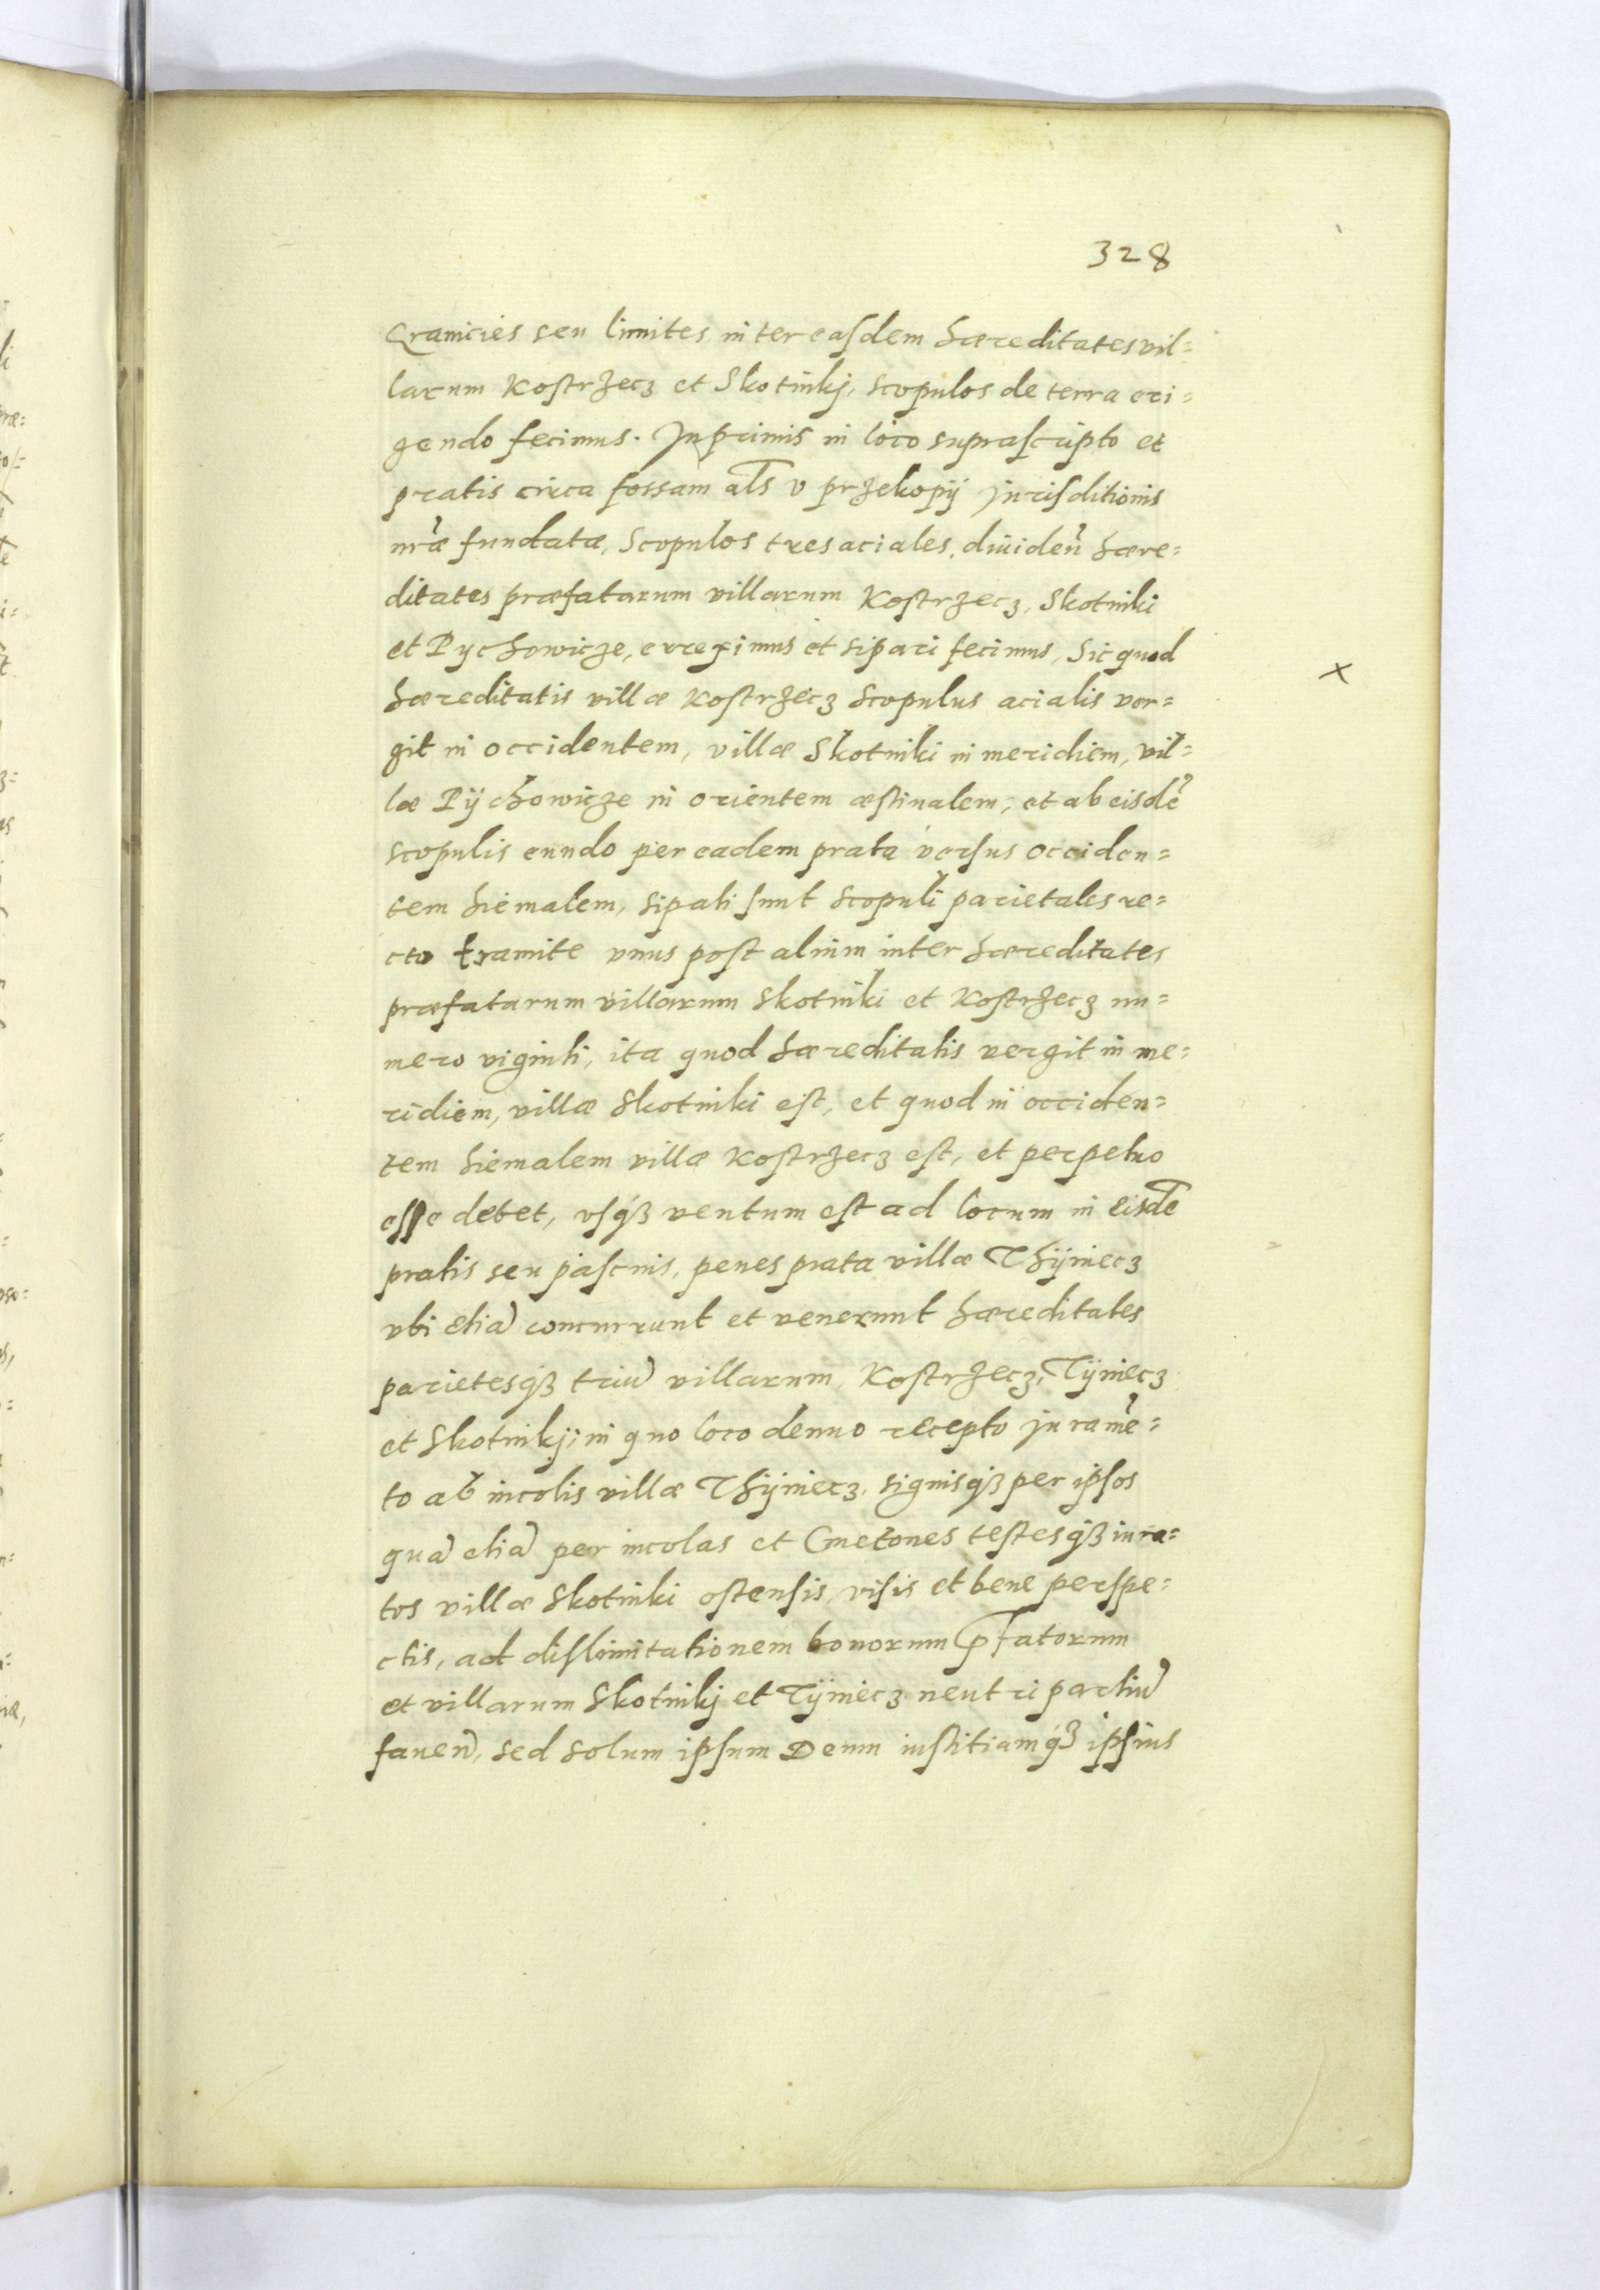 328
Granicies seu limites inter easdem hæreditates vil=
larum Kostrzecz et Skotnikj, scopulos de terra eri=
gendo fecimus. Inprimis in loco suprascripto et
pratis circa fossam als v przekopÿ Jurisditionis
nræ fundatæ, Scopulos tres aciales, diuiden hære=
ditates præfatarum villarum Kostrzecz, Skotniki
et Pychowicze, erreximus et sipari fecimus, Sic quod
hæreditatis villæ Kostrzecz Scopulus acialis ver=
git in occidentem, villæ Skotniki in meridiem, vil=
læ Pÿchowicze in orientem æstiualem, et ab eisdē
scopulis eundo per eadem prata versus occiden=
tem hiemalem, sipati sunt scopuli parietales re=
cto tramite vnus post alium inter hæreditates
præfatarum villarum Skotniki et Kostrzecz nu=
mero viginti, ita quod hæreditatis vergit in me=
ridiem, villæ Skotniki est, et quod in occiden=
tem hiemalem villæ Kostrzecz est, et perpetuo
esse debet, vsqȝ ventum est ad locum in eisdē
pratis seu pascuis, penes prata villæ Thÿniecz
vbi etiā concurrunt et venerunt hæreditates
parietesqȝ triū villarum, Kostrzecz, Tÿniecz
et Skotnikj; in quo loco denuo recepto Juramē=
to ab incolis villæ Thÿniecz, signisqȝ per ipsos
quā etiā per incolas et Cmetones testesqȝ iura=
tos villæ Skotniki ostensis, visis et bene perspe=
ctis, ad dislimitationem bonorum pfatorum
et villarum Skotnikj et Tÿniecz neutri partiū
fauen, sed solum ipsum Deum iustitiamqȝ ipsius
x